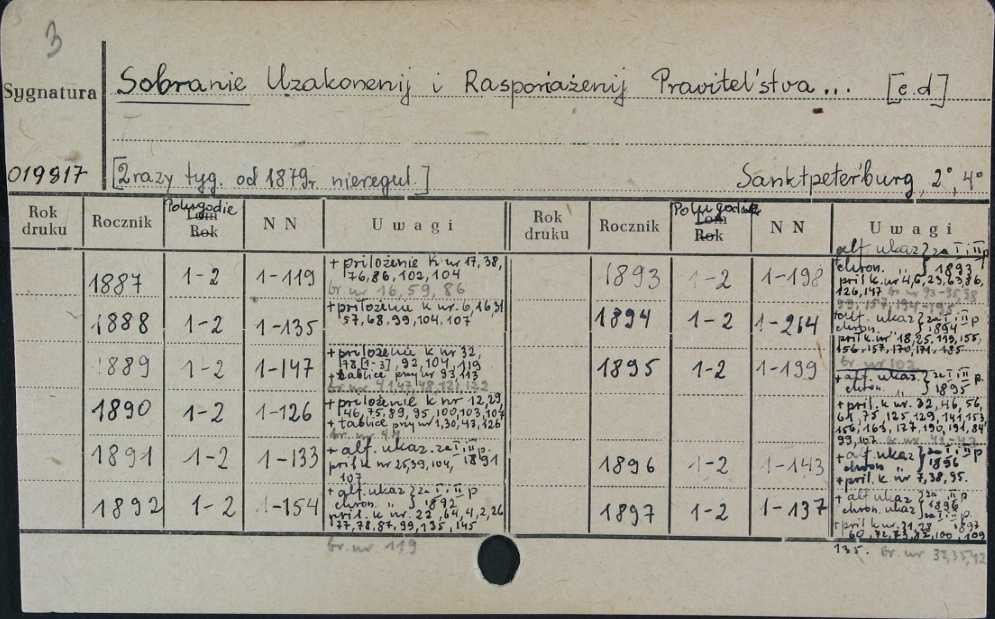 3
Sygnatura
Sobranie Uzakonenij i Rasporiażenij Pravitel'stva... [c.d]
019817
[2 razy tyg. od 1879r. nieregul.]
Sanktpeterburg, 2°, 4°
Rok druku Rocznik Polugodie Rok N N Uwagi
1887 1-2 1-119 + priloženie k nr 17, 38,
76, 86, 102, 104
br. nr 16, 59, 86
1888 1-2 1-135 + priloženia k nr. 6, 16, 31
57, 68, 99, 104, 107
1889 1-2 1-147 + priloženia k nr 32,
78, [1-3], 92, 104, 119
+ tablice przy nr 93, 113
1890 1-2 1-126 + priloženie k nr 12, 29,
46, 75, 89, 95, 100, 103, 107
+ tablice przy nr 1, 30, 43, 126
1891 1-2 1-133 + alf. ukaz. za I i II p.
pril. k nr 25, 39, 104, 1891
107
1892 1-2 1-154 + alf. ukaz } za I i II p
chron. " } 1892
pril. k nr. 22, 64, 4, 2, 26
77, 78, 87, 99, 135, 145
br. nr 119
Rok druku Rocznik Polugodie Rok N N Uwagi
1893 1-2 1-198 alf. ukaz } za I i II p
chron. " } 1893
pril. k. nr 4, 6, 23, 63, 86,
126, 147
1894 1-2 1-214 alf. ukaz } za I i II p
chron. " } 1894
pril. k nr 18, 25, 119, 155,
156, 157, 170, 171, 185
br. nr 102
1895 1-2 1-199 + alf. ukaz. } za I i II p
chron. " } 1895
+ pril. k nr 32, 46, 56,
61, 75, 125, 129, 141, 153,
156, 163, 177, 190, 191, 84
99, 107
1896 1-2 1-143 + alf. ukaz } za I i II p
chron. " } 1896
+ pril. k nr 7, 38, 95.
1897 1-2 1-137 + alf. ukaz } za I i II p
chron. ukaz } 1896
za I i II p. 1897
+ pril k nr. 21, 28
60, 72, 73, 82, 100, 109
135. br. nr 32, 35, 42